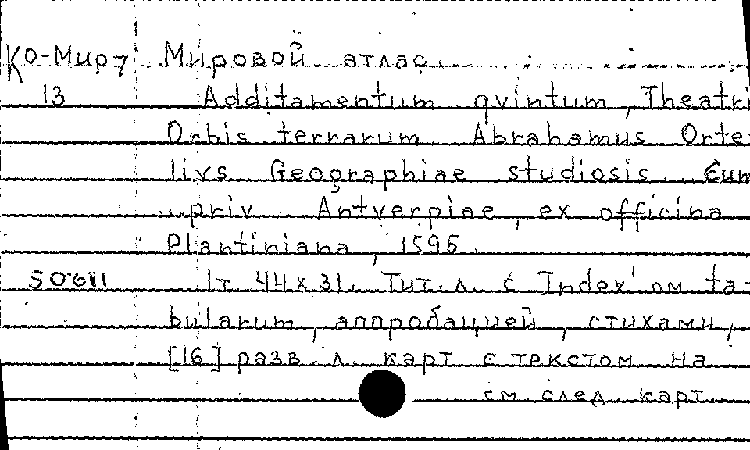 Ко-Мир7 Мировой атлас.
13 Additamentum qvintum, Theatri
Orbis terrarum. Abrahamus Orte-
livs Geographiae studiosis. Cum
priv. Antverpiae, ex officina
Plantiniana, 1595.
50611 1т. 44х31. Тит. л. с Index'ом ta-
bularum, аппробацией, стихами,
[16] разв. л. карт с текстом на
см. след. карт.